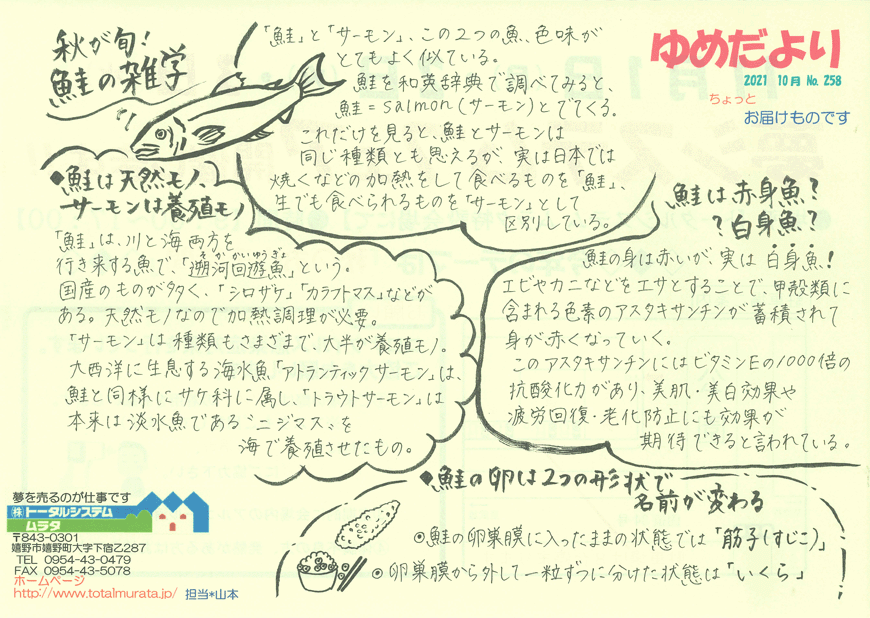 秋が旬!
鮭の雑学
「鮭」と「サーモン」、この2つの魚、色味が
とてもよく似ている。
鮭を和英辞典で調べてみると、
鮭=salmon(サーモン)とでてくる。
これだけを見ると、鮭とサーモンは
同じ種類とも思えるが、実は日本では
焼くなどの加熱をして食べるものを「鮭」、
生でも食べられるものを「サーモン」として
区別している。
ゆめだより
2021 10月 No. 258
ちょっと
お届けものです
◆鮭は天然モノ、
サーモンは養殖モノ
「鮭」は、川と海両方を
行き来する魚で、「遡河回遊魚」という。
そかかいゆうぎょ
国産のものが多く、「シロザケ」「カラフトマス」などが
ある。天然モノなので加熱調理が必要。
「サーモン」は種類もさまざまで、大半が養殖モノ。
大西洋に生息する海水魚「アトランティックサーモン」は、
鮭と同様にサケ科に属し、「トラウトサーモン」は
本来は淡水魚である〝ニジマス〟を
海で養殖させたもの。
鮭は赤身魚?
?白身魚?
鮭の身は赤いが、実は白身魚!
エビやカニなどをエサとすることで、甲殻類に
含まれる色素のアスタキサンチンが蓄積されて
身が赤くなっていく。
このアスタキサンチンにはビタミンEの1000倍の
抗酸化力があり、美肌・美白効果や
疲労回復・老化防止にも効果が
期待できると言われている。
◆鮭の卵は2つの形状で
名前が変わる
◉鮭の卵巣膜に入ったままの状態では「筋子(すじこ)」
◉卵巣膜から外して一粒ずつに分けた状態は「いくら」
夢を売るのが仕事です
㈱トータルシステム
ムラタ
〒843-0301
嬉野市嬉野町大字下宿乙287
TEL 0954-43-0479
FAX 0954-43-5078
ホームページ
http://www.totalmurata.jp/ 担当*山本